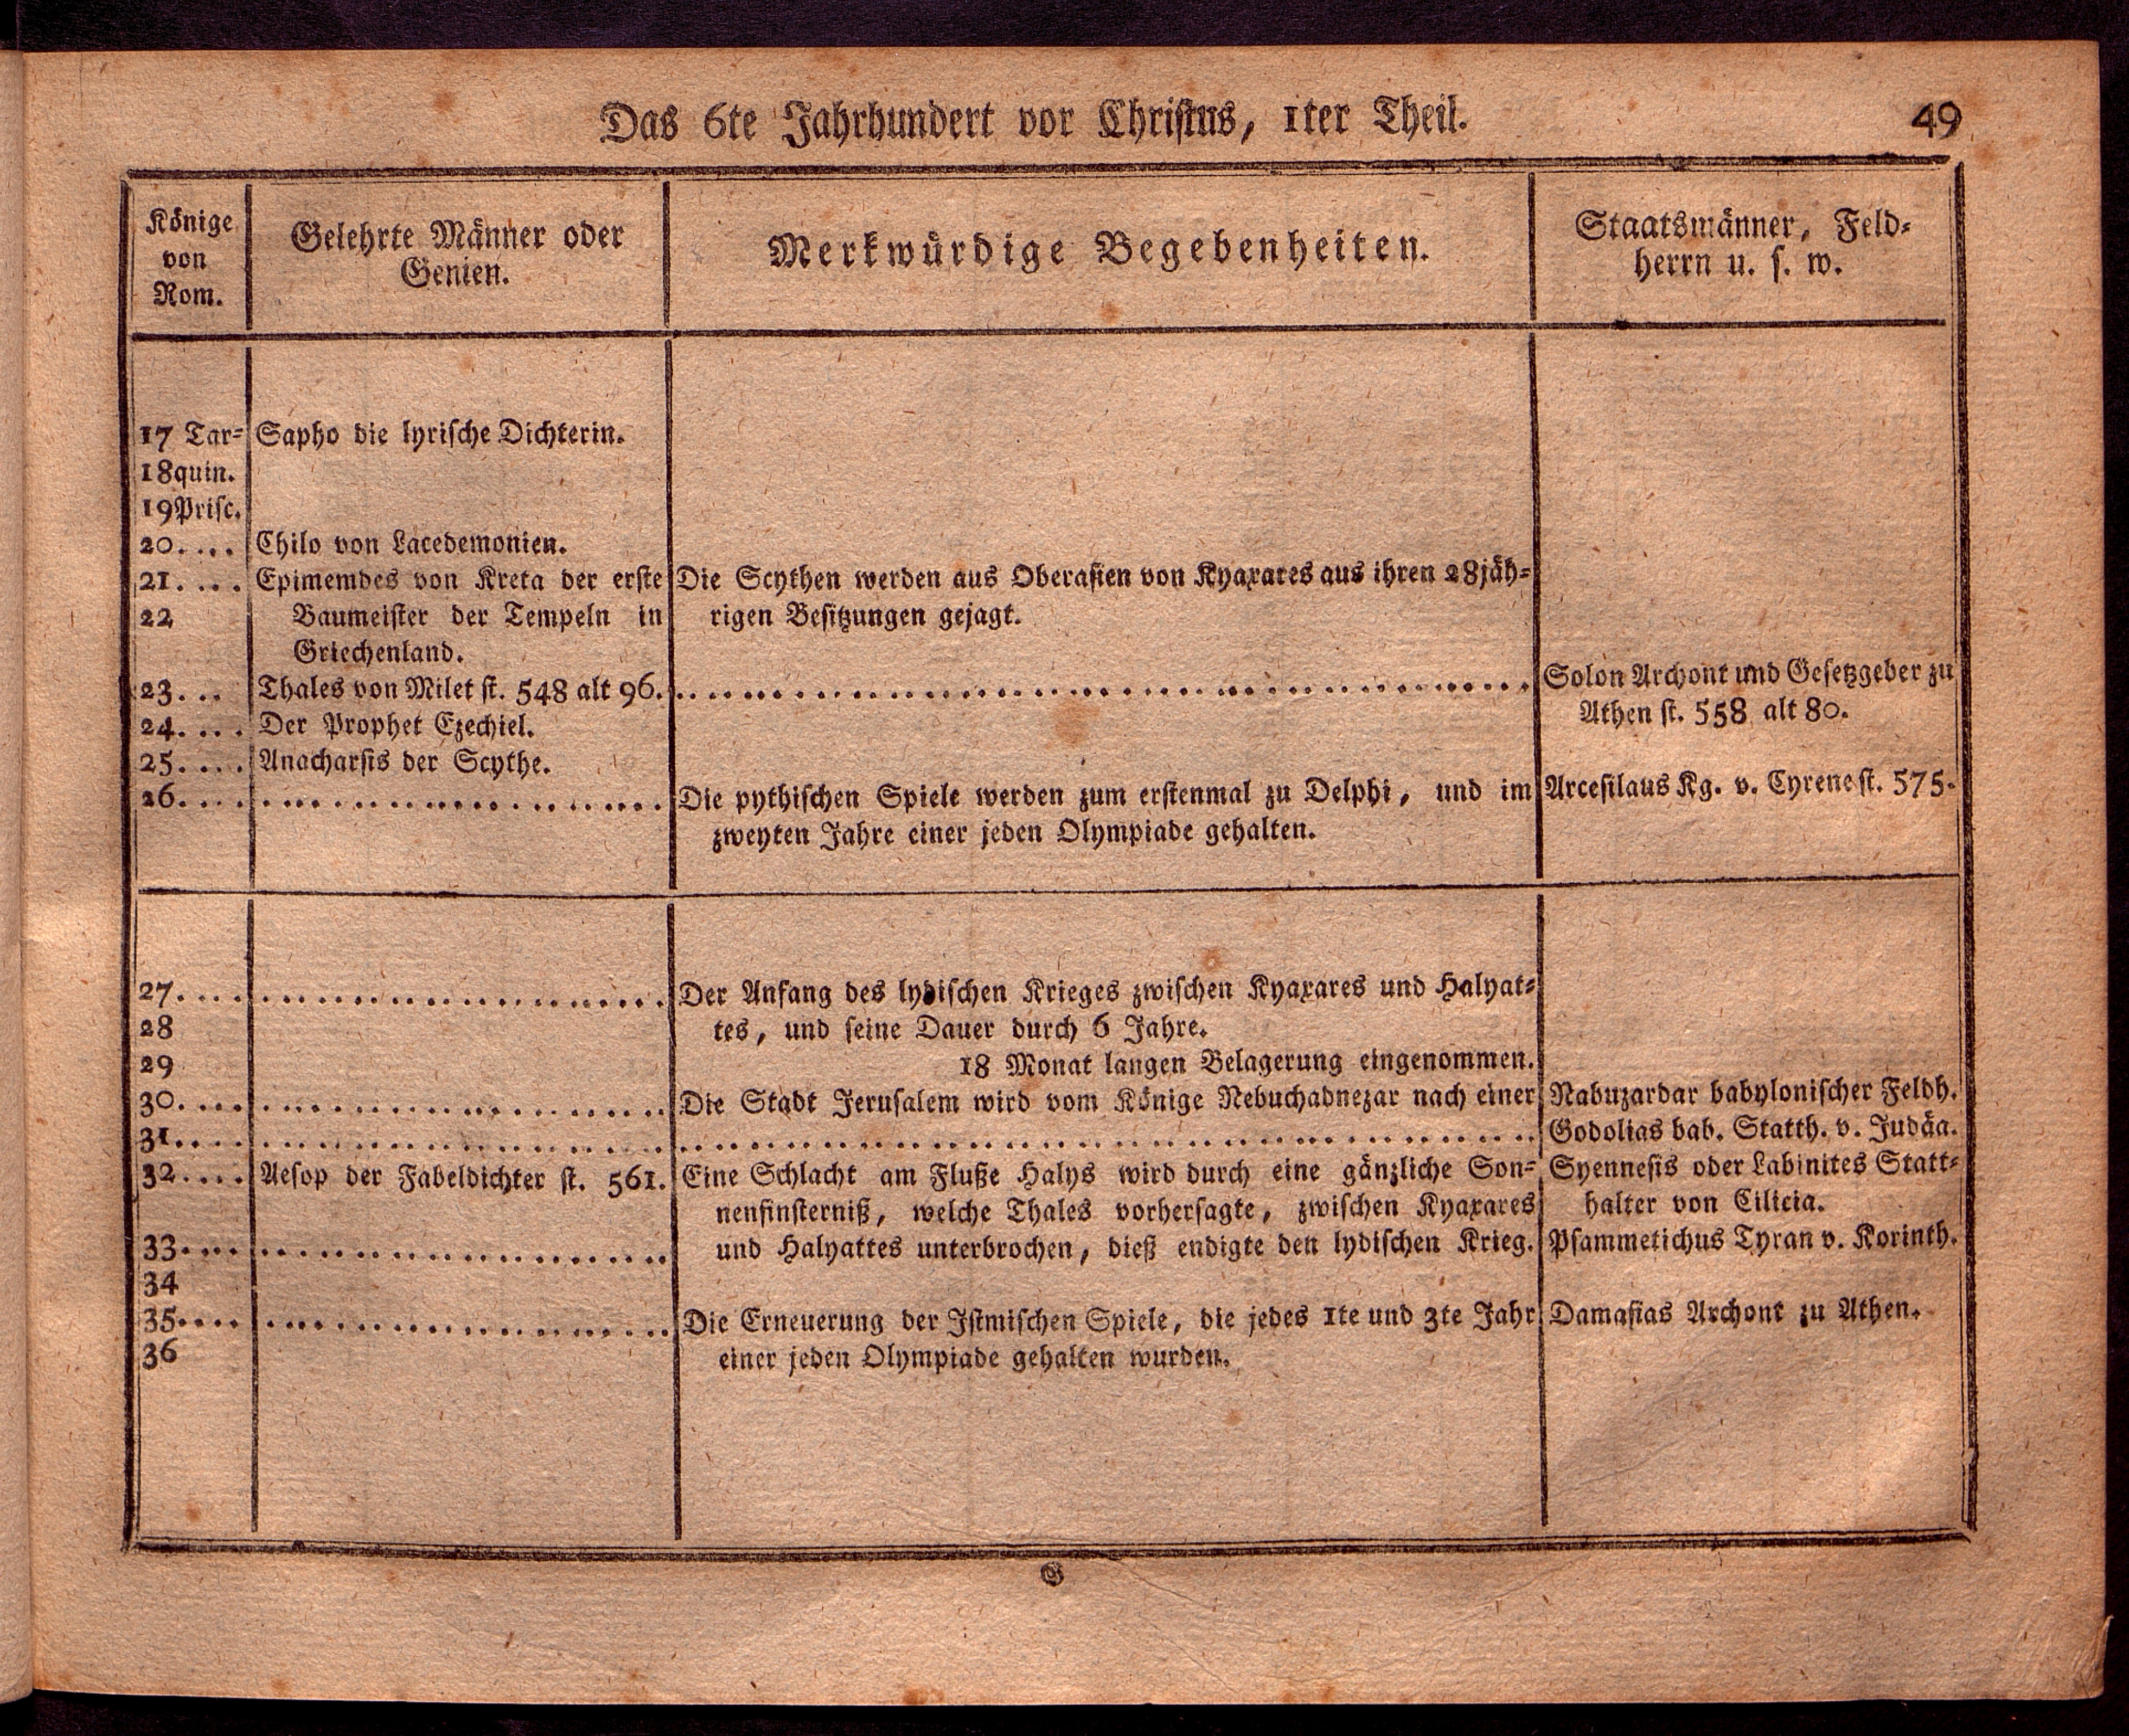 Das 6te Jahrhundert vor Christus, 1ter Theil.
49
Könige
von
Rom.
Gelehrte Männer oder
Genien.
Merkwürdige Begebenheiten.
Staatsmänner, Feld=
herrn u. s. w.
17 Tar= Sapho die lyrische Dichterin.
18quin.
19Prisc.
20.... Chilo von Lacedemonien.
21.... Epimemdes von Kreta der erste Die Scythen werden aus Oberasien von Kyaxares aus ihren 28jäh=
22 Baumeister der Tempeln in rigen Besitzungen gejagt.
Griechenland.
23... Thales von Milet st. 548 alt 96. ........ Solon Archont und Gesetzgeber zu
24.... Der Prophet Ezechiel. Athen st. 558 alt 80.
25.... Anacharsis der Scythe.
26.... ........ Die pythischen Spiele werden zum erstenmal zu Delphi, und im Arcesilaus Kg. v. Cyrene st. 575.
zweyten Jahre einer jeden Olympiade gehalten.
27.... ........ Der Anfang des lydischen Krieges zwischen Kyaxares und Halyat=
28 tes, und seine Dauer durch 6 Jahre.
29 18 Monat langen Belagerung eingenommen.
30.... ........ Die Stadt Jerusalem wird vom Könige Nebuchadnezar nach einer Nabuzardar babylonischer Feldh.
31.... ........ ........ Godolias bab. Statth. v. Judäa.
32.... Aesop der Fabeldichter st. 561. Eine Schlacht am Fluße Halys wird durch eine gänzliche Son= Syennesis oder Labinites Statt=
nenfinsterniß, welche Thales vorhersagte, zwischen Kyaxares halter von Cilicia.
33.... ........ und Halyattes unterbrochen, dieß endigte den lydischen Krieg. Psammetichus Tyran v. Korinth.
34
35.... ........ Die Erneuerung der Istmischen Spiele, die jedes 1te und 3te Jahr Damasias Archont zu Athen.
36 einer jeden Olympiade gehalten wurden.
G